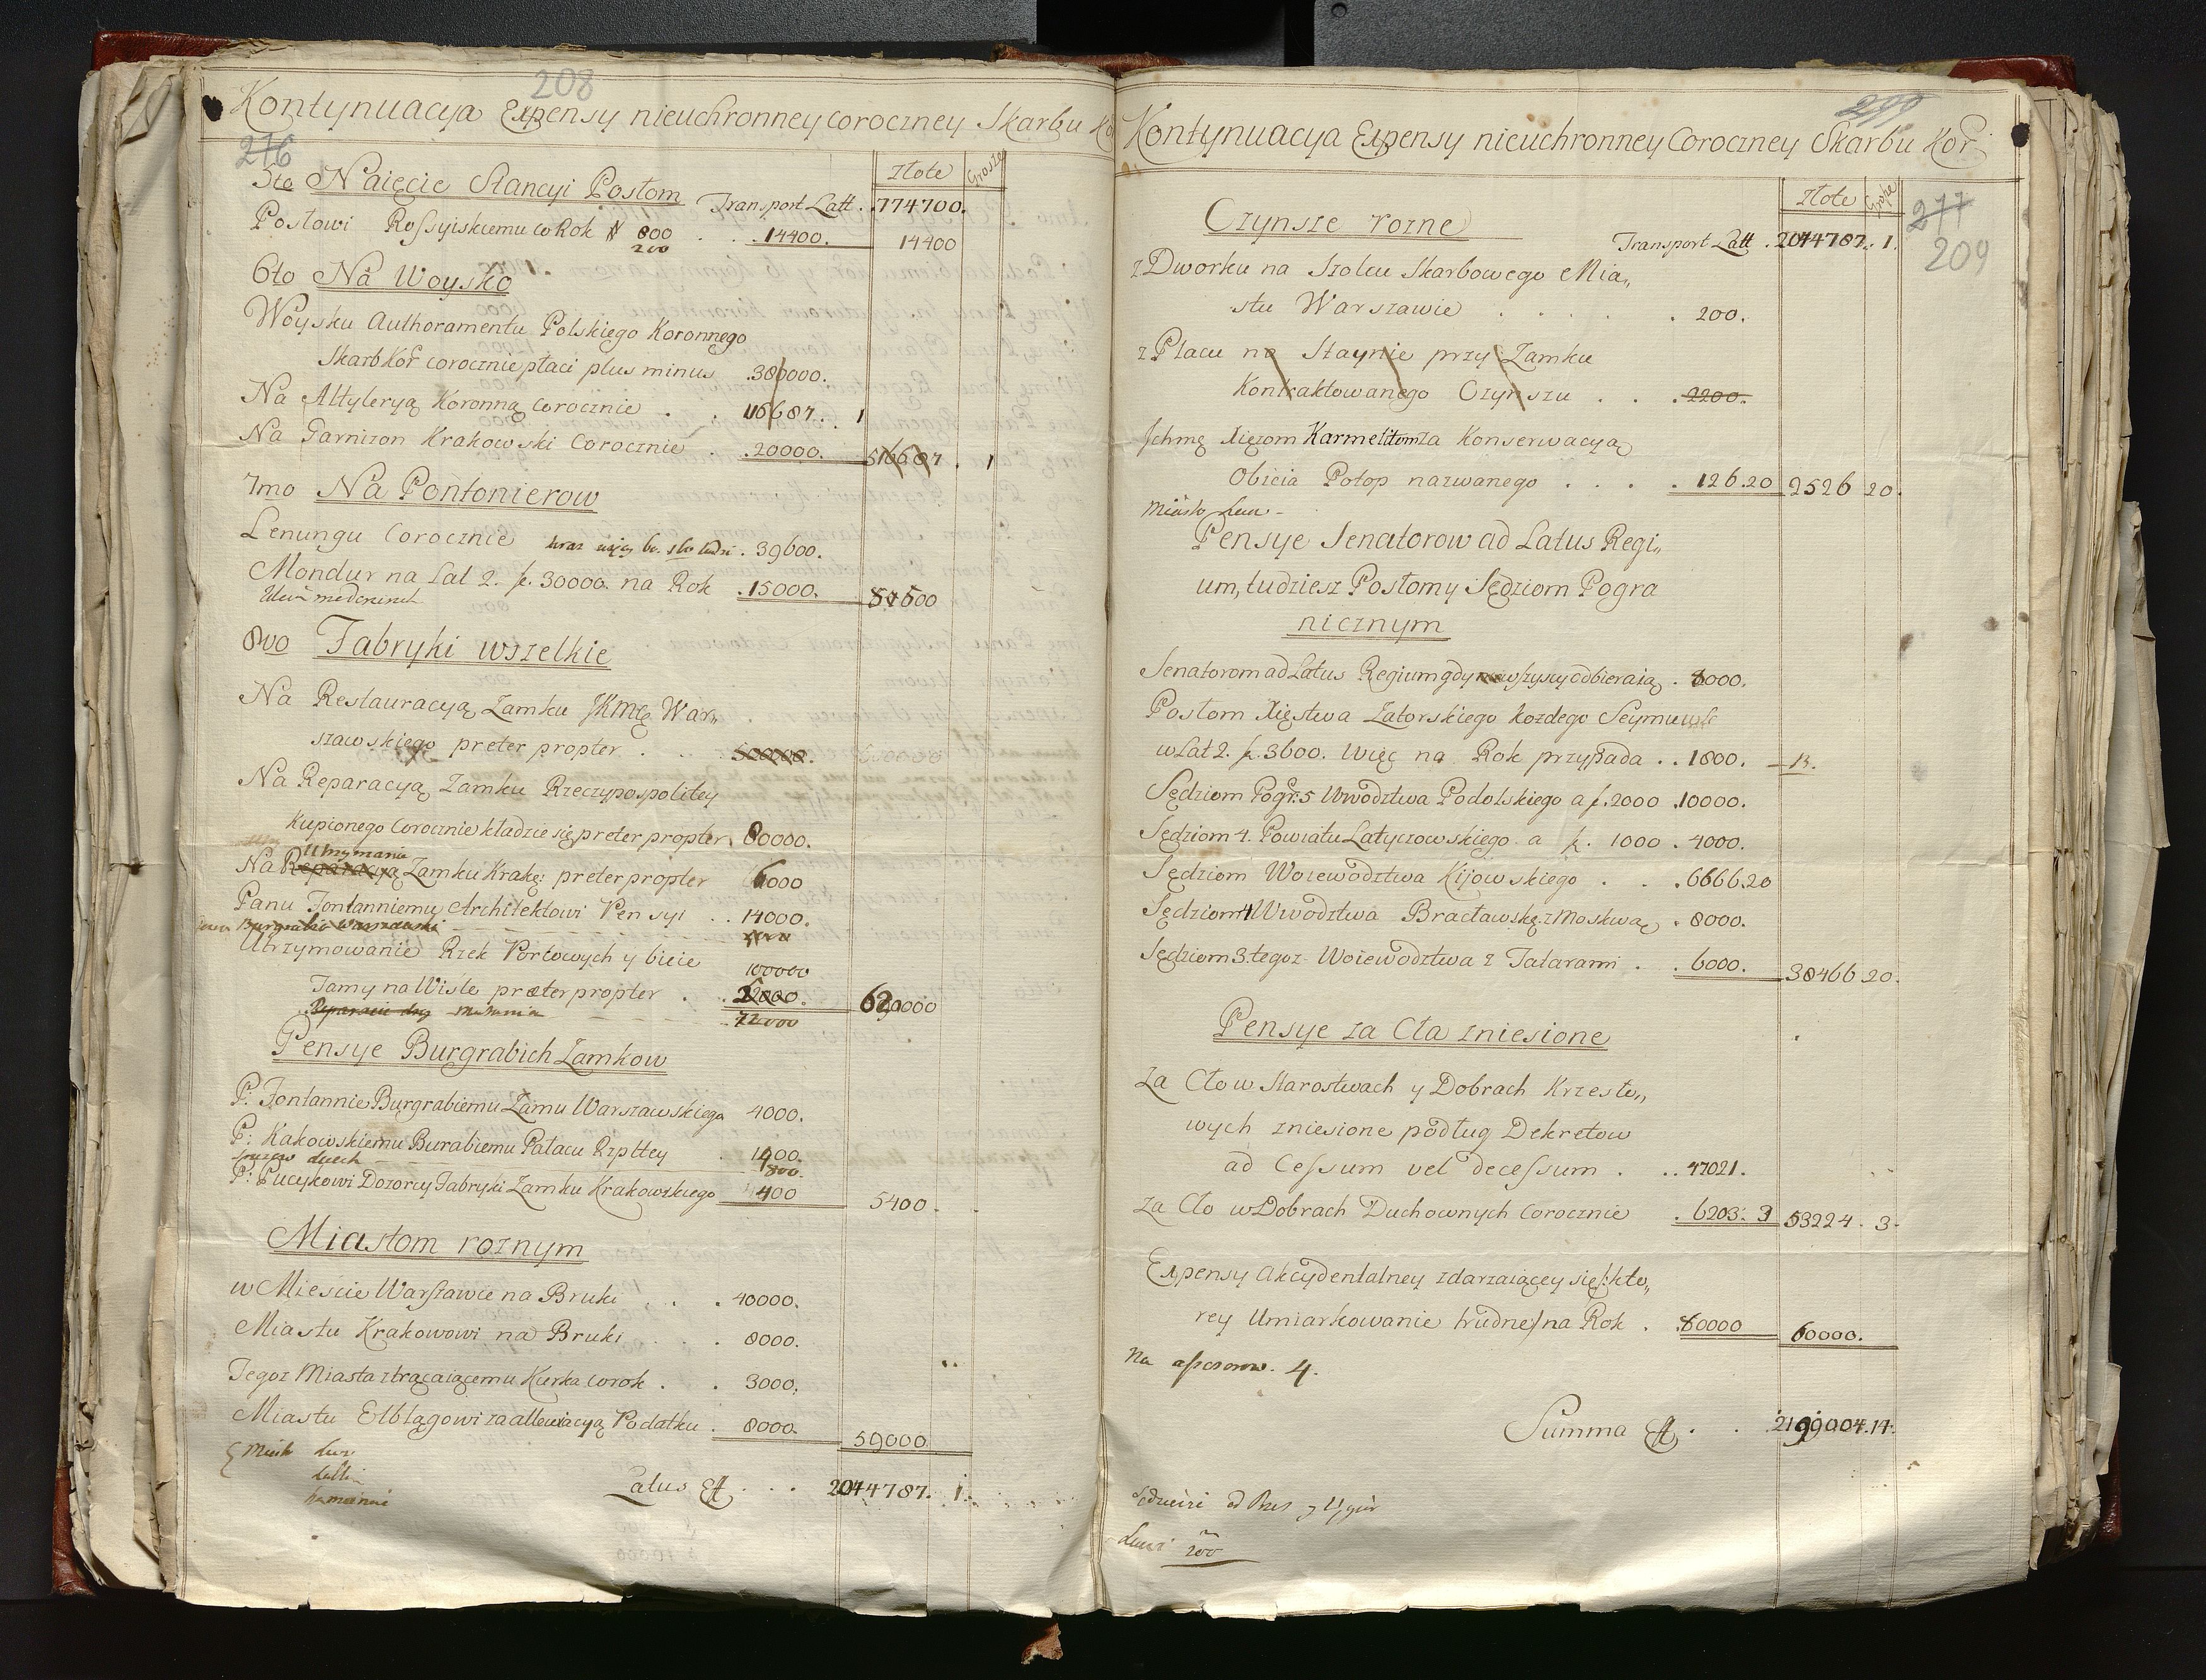 208
Kontynuacya Expensy nieuchronney coroczney Skarbu Ko
276
Złote Grosze
5to Naięcie Stancyi Posłom Transport Latt . 774700.
Posłowi Rossyiskiemu co Rok # 800 . . 14400. 14400
200
6to Na Woysko
Woysku Authoramentu Polskiego Koronnego
Skarb Kor̃ corocznie płaci plus minus .380000.
Na Altyleryą Koronną corocznie . . 116687. 1
Na Garnizon Krakowski Corocznie . .20000. 516687 . 1
7mo Na Pontonierow
Lenungu Corocznie . 39600.
Mondur na Lat 2. f. 30000. na Rok .15000. 54600
8vo Fabryki wszelkie
Na Restauracyą Zamku JKMę War„
szawskiego preter propter . . 50000.
Na Reparacyą Zamku Rzeczypospolitey
Kupionego Corocznie kładzie się preter propter 80000.
Utrzymanie
Na Reparacyą Zamku Krakę: preter propter 6000
Panu Fontanniemu Architektowi Pensyi . . 14000.
Burgrabia Warszawski
Utrzymowanie Rzek Portowych y bicie 100000
Tamy na Wiśle præter propter . . 22000. 620000
72000
Pensye Burgrabich Zamkow
P: Fontannie Burgrabiemu Zamu Warszawskiego 4000.
P: Kakowskiemu Burabiemu Pałacu Rzpltey . 1000.
800.
P: Pucykowi Dozorcy Fabryki Zamku Krakowskiego 400 5400.
Miastom roznym
w Mieście Warszawie na Bruki . . . 40000.
Miastu Krakowowi na Bruki . . . 8000.
Tegoz Miasta ztrącaiącemu Kurka corok . . 3000.
Miastu Elblągowi za allewiacyą Podatku . 8000. 59000
Latus Eff . . . 2044787. 1.
299
Kontynuacya Expensy nieuchronney Coroczney Skarbu Kor̃
277
209
Złote Grosze
Czynsze rozne
Transport Latt . 2044787. 1.
z Dworku na Szolcu Skarbowego Mia„
stu Warszawie . . . . . 200.
z Placu na Staynie przy Zamku
Kontraktowanego Czynszu . . . 2200.
Jchmę Xięzom Karmelitom za Konserwacyą
Obicia Potop nazwanego . . . . 126.20 2526 20.
Pensye Senatorow ad Latus Regi„
um, tudziesz Posłom y Sędziom Pogra
nicznym
Senatorom ad Latus Regium gdy wszyscy odbieraią . 8000.
Posłom Xięstwa Zatorskiego kozdego Seymu
w Lat 2. f. 3600. Więc na Rok przypada . . 1800.
Sędziom Pogr: 5 Wwodztwa Podolskiego a f. 2000 .10000.
Sędziom 4. Powiatu Latyczowskiego a f. 1000 . 4000.
Sędziom Woiewodztwa Kijowskiego . . . 6666.20
Sędziom 4 Wwodztwa Bracławskę z Moskwą . 8000.
Sędziom 3. tegoz Woiewodztwa z Tatarami . . 6000. 38466 20.
Pensye za Cła zniesione
Za Cło w Starostwach y Dobrach Krzesło„
wych zniesione podług Dekretow
ad Cessum vel decessum . . . 47021.
Za Cło w Dobrach Duchownych Corocznie . 6203. 3 53224 . 3.
Expensy Akcydentalney zdarzaiącey się /: kto„
rey Umiarkowanie trudne / na Rok . 80000 60000.
Na 4.
Summa Eff . . . 2199004. 14.
200